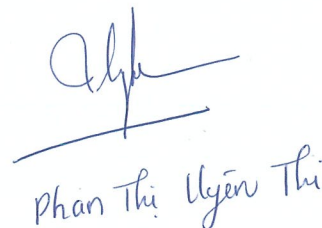 Phan Thị Uyên Thi